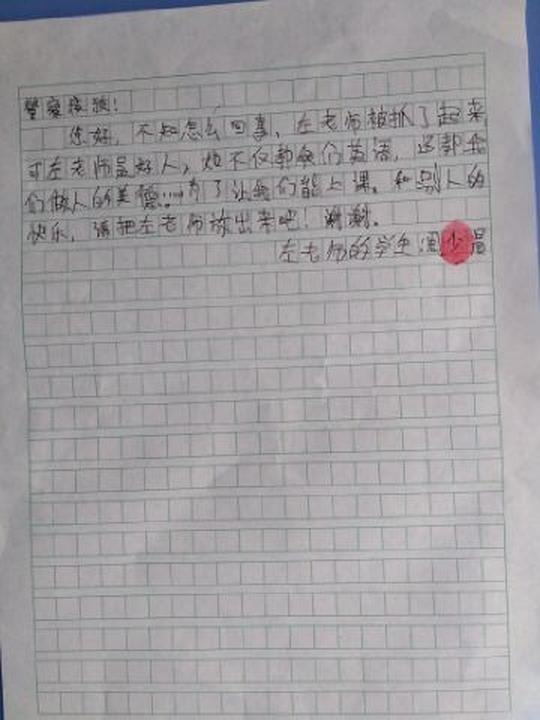 警察叔叔！
您好，不知怎么回事，左老师被抓了起来
可左老师是好人，她不仅教我们英语，还教我
们做人的美德……为了让我们能上课，和别人的
快乐，请把左老师放出来吧！谢谢。
左老师的学生：周少晨